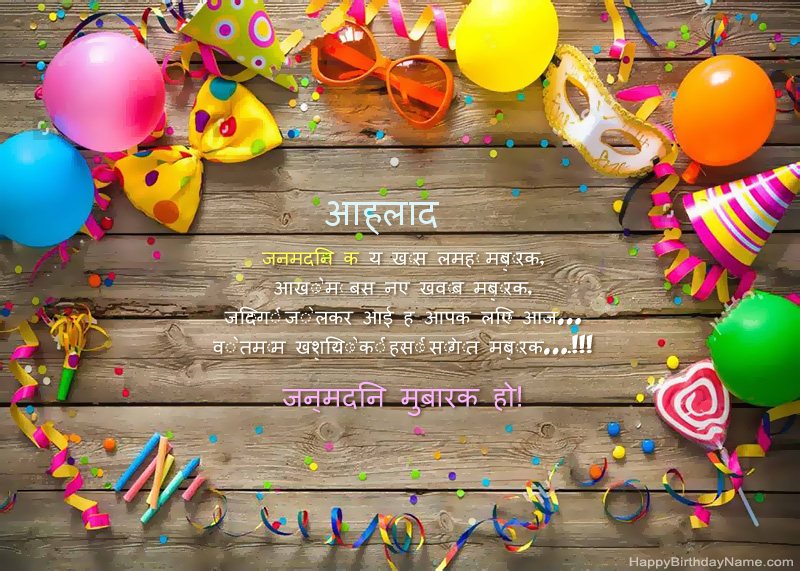 आह्लाद
जन्मदिन के ये ख़ास लम्हें मुबारक,
आँखों में बसे नए ख्वाब मुबारक,
जिंदगी जो लेकर आई है आपके लिए आज...
वो तमाम खुशियों की हंसीं सौगात मुबारक...!!!
जन्मदिन मुबारक हो!
HappyBirthdayName.com